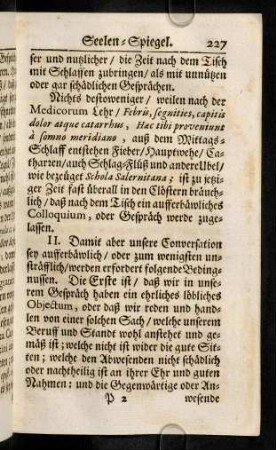 Seelen-Spiegel. 227
ser und nutzlicher / die Zeit nach dem Tisch
mit Schlaffen zubringen / als mit unnützen
oder gar schädlichen Gesprächen.
Nichts destoweniger / weilen nach der
Medicorum Lehr / Febris, segnities, capitis
dolor atque catarrhus, Hæc tibi proveniunt
à somno meridiano, auß dem Mittags-
Schlaff entstehen Fieber / Hauptwehe / Ca-
tharren / auch Schlag-Flüß und andere Ubel /
wie bezeüget Schola Salernitana; ist zu jetzi-
ger Zeit fast überall in den Clöstern bräuch-
lich / daß nach dem Tisch ein aufferbäwliches
Colloquium, oder Gespräch werde zuge-
lassen.
II. Damit aber unsere Conversation
sey aufferbäwlich / oder zum wenigsten un-
sträfflich / werden erfordert folgende Beding-
nussen. Die Erste ist / daß wir in unse-
rem Gespräch haben ein ehrliches löbliches
Objectum, oder daß wir reden und handlen
von einer solchen Sach / welche unserem
Beruff und Standt wohl anstehet und ge-
mäß ist; welche nicht ist wider die gute Sit-
ten; welche den Abwesenden nicht schädlich
oder nachtheilig ist an ihrer Ehr und guten
Nahmen: und die Gegenwärtige oder An-
P 2 wesende